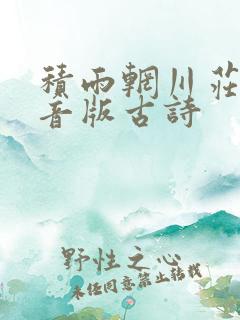 積雨輞川莊
音版古詩
野性之心
未经同意禁止转载